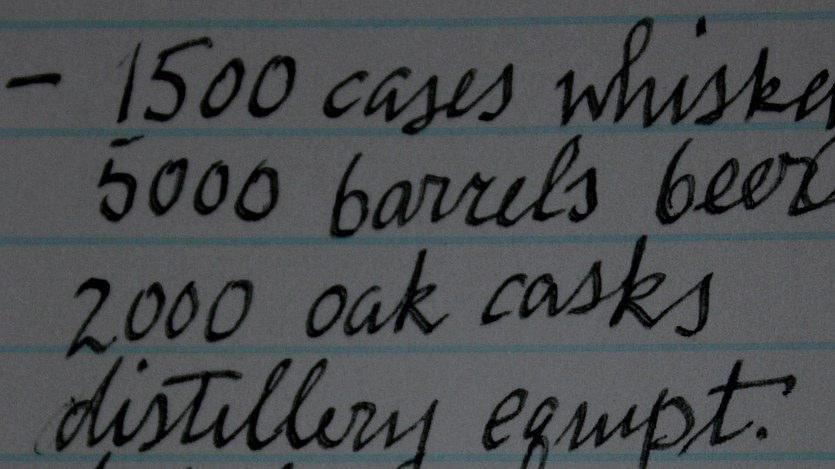 - 1500 cases whiskey
5000 barrels beer
2000 oak casks
distillery equipt.